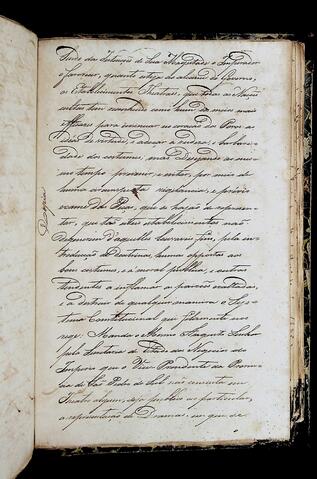 Sendo das Intenções de Sua Magestade o Imperador
favorecer, quanto esteja ao alcance do Governo,
os Estabelecimentos Theatraes, que todas as Nações
cultas tem considerado como hum dos meios mais
efficazes para insinuar no coração do Povo as
idéas de virtude, e adoçar a rudeza, e barbari-
dade dos costumes, mas Desejando ao mes-
mo tempo prevenir, e evitar, por meio de
huma circunspecta vigilancia, e previo
exame das Peças, que se hajão de represen-
tar, que taes estabelecimentos não
degenerem d'aquelles louvaveis fins, pela in-
troducção de Doutrinas, humas oppostas aos
bons costumes, e á moral publica, e outras
tendentes a inflamar as paixões exaltadas,
e a destruir de qualquer maneira o Sys-
tema Constitucional que felizmente nos
rege. Manda o Mesmo Augusto Senhor
pela Secretaria de Estado dos Negocios do
Imperio que o Vice Presidente da Provin-
cia de São Pedro do Sul não consinta em
Theatro algum, seja publico ou particular,
a representação de Dramas, em que se